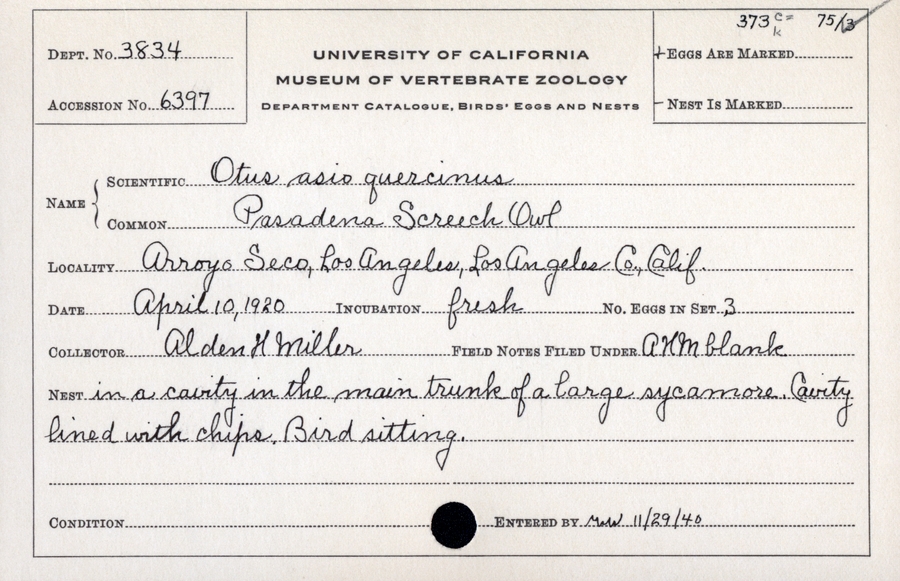 373 c= k 75/3
Dept. No. 3834
UNIVERSITY OF CALIFORNIA
+ Eggs Are Marked
MUSEUM OF VERTEBRATE ZOOLOGY
Accession No. 6397
Department Catalogue, Birds' Eggs and Nests
– Nest Is Marked
Name { Scientific Otus asio quercinus
Common Pasadena Screech Owl
Locality Arroyo Seco, Los Angeles, Los Angeles Co., Calif.
Date April 10, 1920 Incubation fresh No. Eggs in Set 3
Collector Alden H Miller Field Notes Filed Under AHM blank
Nest in a cavity in the main trunk of a large sycamore. Cavity
lined with chips. Bird sitting.
Condition Entered by 11/29/40